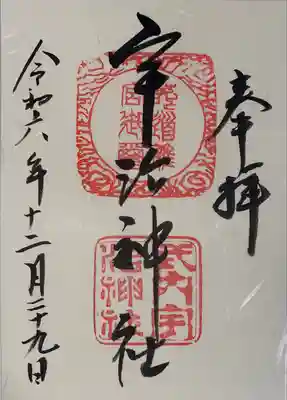 奉拝
宇治神社
令和六年十二月二十九日